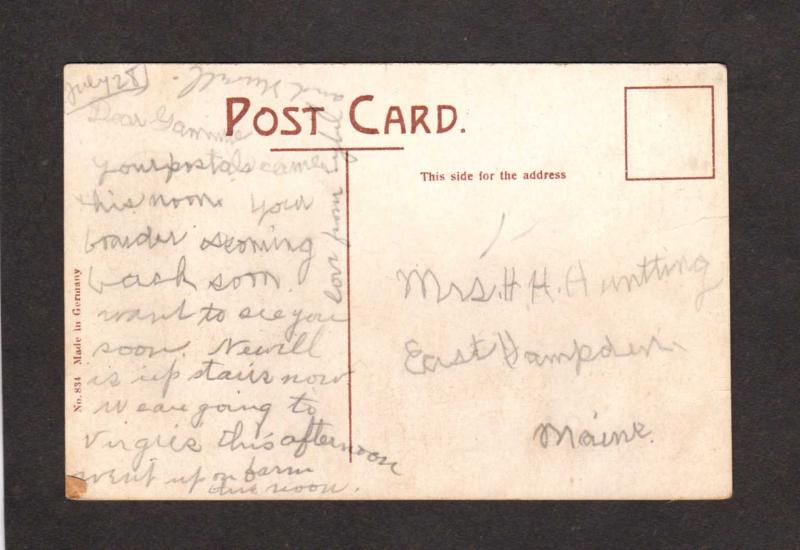 July 28
Dear Gammie
your postals came
this noon. Your
boarder is coming
back soon.
want to see you
soon. Newill
is up stairs now
we are going to
Virgies this afternoon
went up on farm
this noon.
love from
and Newill.
POST CARD.
This side for the address
Mrs. H. H. Huntting
East Hampden
Maine.
No. 834 Made in Germany